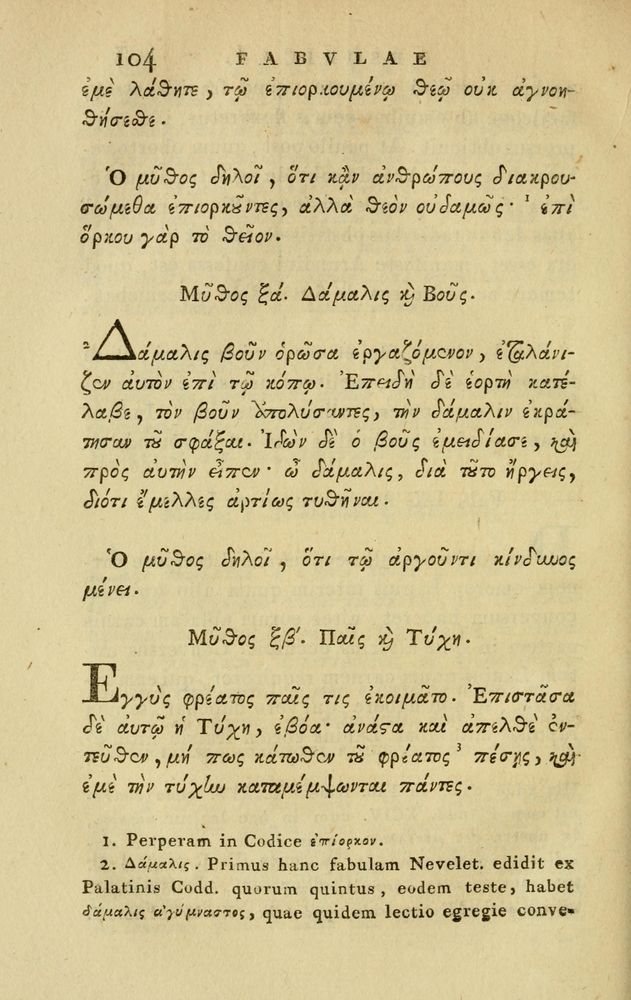 104 FABVLAE
ἐμὲ λάθητε, τῷ ἐπιορκουμένῳ θεῷ οὐκ ἀγνοη-
θήσεσθε.
Ὁ μῦθος δηλοῖ, ὅτι κἂν ἀνθρώπους διακρου-
σώμεθα ἐπιορκοῦντες, ἀλλὰ θεὸν οὐδαμῶς· ¹ ἐπὶ
ὅρκου γὰρ τὸ θεῖον.
Μῦθος ξά. Δάμαλις ϗ Βοῦς.
² Δάμαλις βοῦν ὁρῶσα ἐργαζόμενον, ἐταλάνι-
ζεν αὐτὸν ἐπὶ τῷ κόπῳ. Ἐπειδὴ δὲ ἑορτὴ κατέ-
λαβε, τὸν βοῦν ἀπολύσαντες, τὴν δάμαλιν ἐκρά-
τησαν τοῦ σφάξαι. Ἰδὼν δὲ ὁ βοῦς ἐμειδίασε, καὶ
πρὸς αὐτὴν εἶπεν· ὦ δάμαλις, διὰ τοῦτο ἤργεις,
διότι ἔμελλες ἀρτίως τυθῆναι.
Ὁ μῦθος δηλοῖ, ὅτι τῷ ἀργοῦντι κίνδυνος
μένει.
Μῦθος ξβ'. Παῖς ϗ Τύχη.
Ἐγγὺς φρέατος παῖς τις ἐκοιμᾶτο. Ἐπιστᾶσα
δὲ αὐτῷ ἡ Τύχη, ἐβόα· ἀνάστα καὶ ἀπελθὲ ἐν-
τεῦθεν, μή πως κάτωθεν τοῦ φρέατος ³ πέσῃς, καὶ
ἐμὲ τὴν τύχην καταμέμψωνται πάντες.
1. Perperam in Codice ἐπίορκον.
2. Δάμαλις. Primus hanc fabulam Nevelet. edidit ex
Palatinis Codd. quorum quintus, eodem teste, habet
δάμαλις ἀγύμναστος, quae quidem lectio egregie conve-